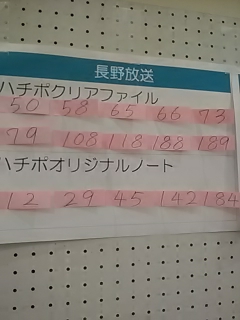 長野放送
ハチポクリアファイル
50 58 65 66 73
79 108 118 188 189
ハチポオリジナルノート
12 29 45 142 184